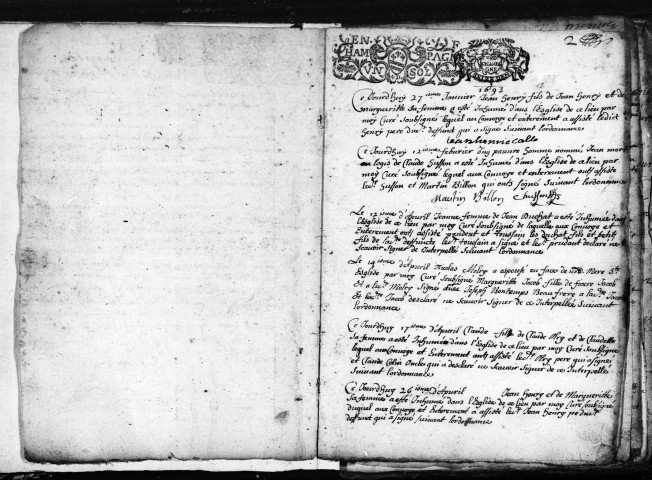 2
EN F
CHAM PAG
VN SOL
1693
Ce Jourdhuy 27 iesme Janvier Jean Henry fils de Jean Henry et de
Margueritte sa femme a esté Inhumé dans l'Eglise de ce lieu par
moy Curé soubsigné lequel au Convoye et enterement a assisté ledict
Henry pere du dit deffunct qui a signé suivant l'ordonnance
Ce Jourdhuy 12 iesme febvrier un pauvre homme nommé Jean mort
au logis de Claude Husson a esté Inhumé dans l'Eglise de ce lieu par
moy Curé soubsigné lequel aux Convoye et enterement ont assisté
led. Husson et Martin Billon qui ont signé suivant l'ordonnance
Martin Billon
Le 12 iesme d'Apuril Jeanne femme de Jean Duchat a esté Inhumée dans
l'Eglise de ce lieu par moy Curé soubsigné de laquelle aux Convoye et
Enterement ont assisté et Toussain les Duchat fils et petit
fils de lad. deffuncte led. Toussain a signé et led. declaré ne
scavoir signer de ce Interpellé suivant l'ordonnance
Le 14 iesme d'Apuril Nicolas Melry a espousé en face de n're Mere Ste
Eglise par moy Curé soubsigné Margueritte Jacob fille de Jacob
et a led. Melry signé avec Joseph Bontemps beau frere a lad. Jacob
et lad. Jacob declaré ne scavoir signer de ce Interpellée suivant
l'ordonnance
Ce Jourdhuy 17 iesme d'Apuril Claude fille de Claude Oly et de Claudette
sa femme a esté Inhumée dans l'Eglise de ce lieu par moy Curé soubsigné
lequel au Convoye et Enterement ont assisté led. Oly pere qui a signé
et Claude Colin Oncle qui a declaré ne scavoir signer de ce Interpellé
suivant l'ordonnance
Ce Jourdhuy 26 iesme d'Apuril Jean Henry et de Margueritte
sa femme a esté Inhumé dans l'Eglise de ce lieu par moy Curé soubsigné
duquel aux Convoye et Enterement a assisté led. Jean Henry pere du d.
deffunct qui a signé suivant l'ordonnance